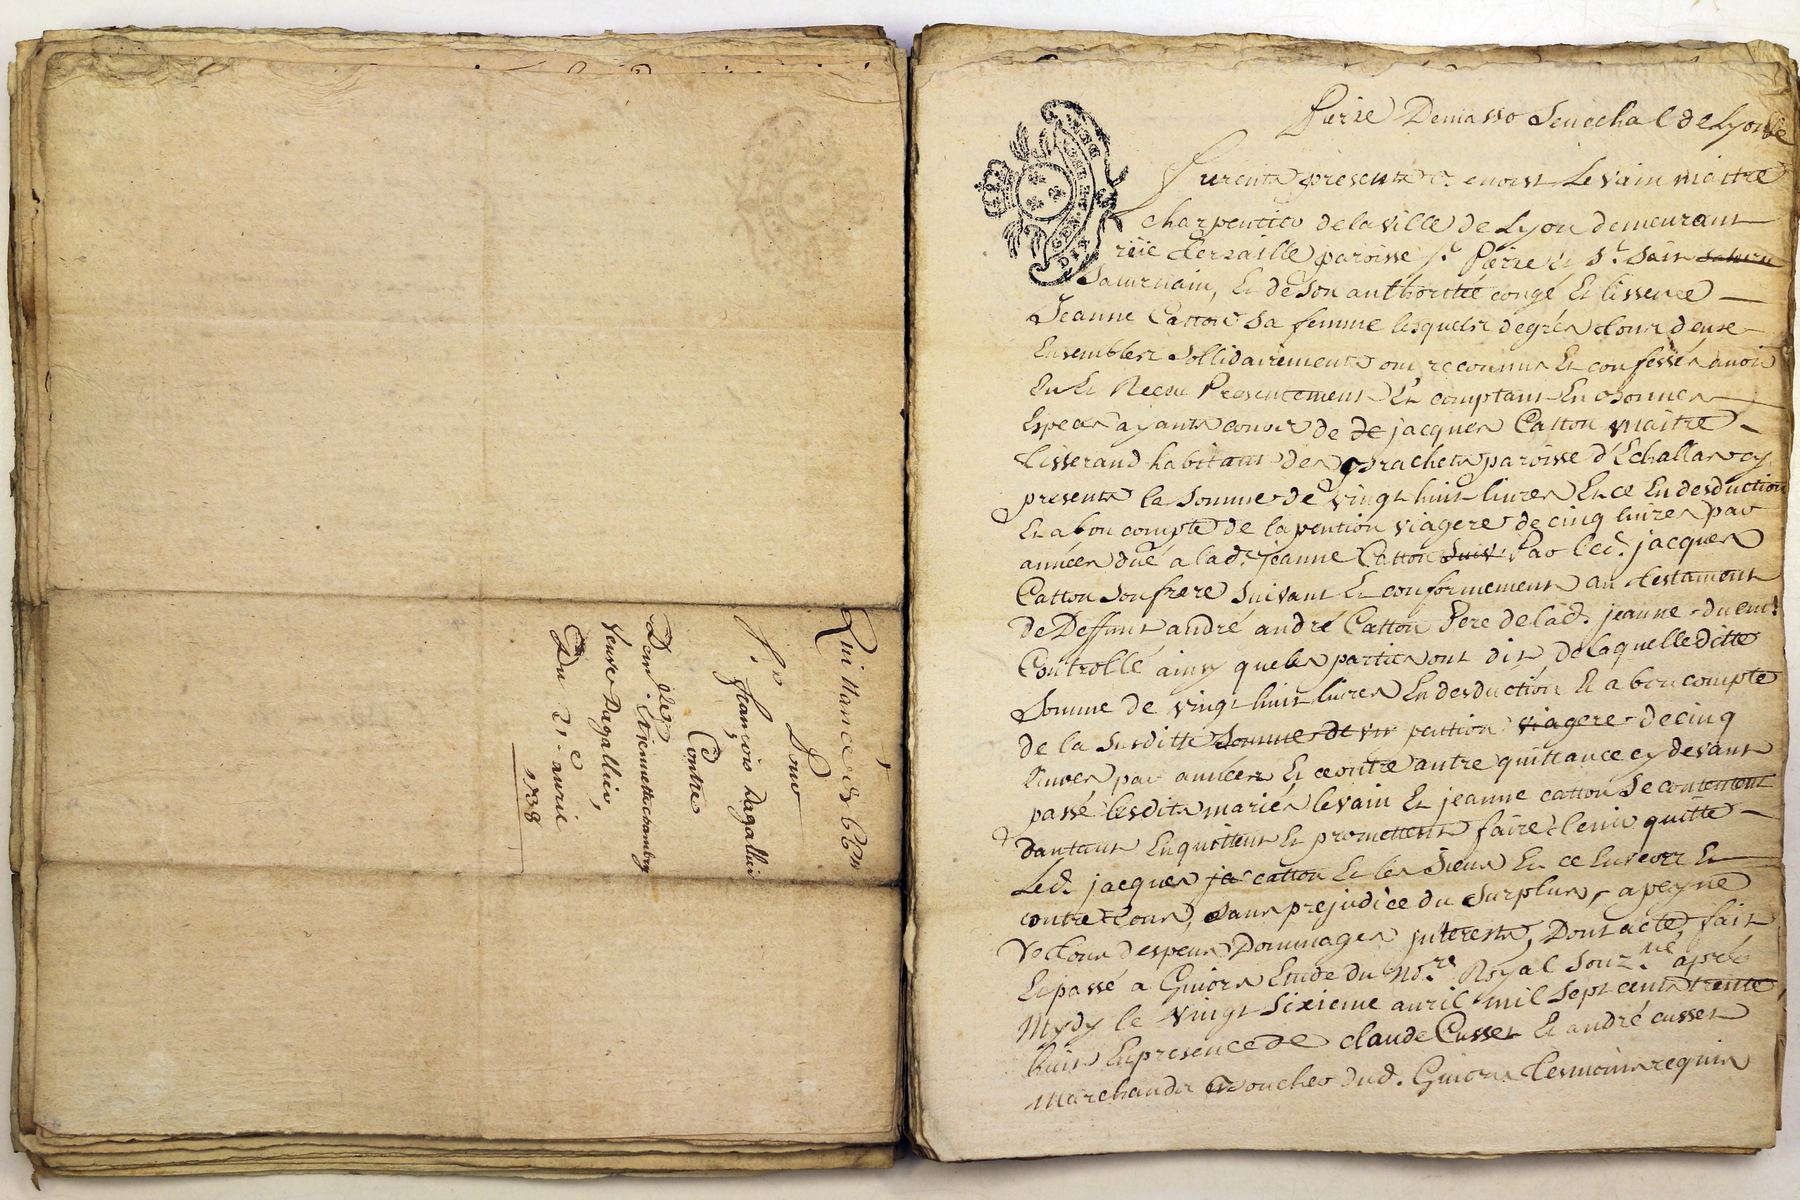 Quittance de 66ᵗᵗ
Pour
Sʳ françois Dagallier
Contre
Dem.lle Etiennette chambry
Veuve Dagallier,
Du 21.e avril
1738
Pierre Demasso Senechal de Lyon
Furent presents Benoist Levain maitre
charpentier de la ville de Lyon demeurant
rüe terraille paroisse sᵗ. Pierre et Sᵗ. Sair saturn
Saturnain, Et de Son authorittée congé Et lissence
Jeanne Catton Sa femme lesquels degrés tous deux
Ensembles Sollidairements ont reconnus Et confessés avoir
Eu Et Receu Presentement Et comptant En bonnes
Especes ayants cours de de jacques Catton maitre
tisserand habitant des brachets paroisse d'Echallas cy
present la Somme de vingt huit livres Et ce En desduction
Et a bon compte de la pention viagere de cinq livres par
années düe a lad. jeanne Catton suiv Par led. jacques
Catton Son frere Suivant Et conformement au testament
de Deffunt andré andré Catton Pere de lad. jeanne duem.
Controllé ainsy que les parties ont dit De laquelle ditte
Somme de vingt huit livres En desduction Et a bon compte
de la Susditte Somme de vin pention viagere de cinq
livres par années Et ce outre autre quittance cy devant
passé lesdits mariés levain Et jeanne catton Se contentent
dautant En quittent Et promettent faire tenir quitte
Led. jacques ja catton Et les Siens En ce Envers Et
contre tous, Sans prejudice du Surplus, a peyne
de tous despens Dommages jnterests, Dont acte, fait
Et passé a Givors Etude du No.re Royal Souz.né après
Mydy le vingt Sixieme avril mil Sept cents trente
huit En presence de claude Cusset Et andré cusset
Marchands Boucher dud. Givors tesmoins requis